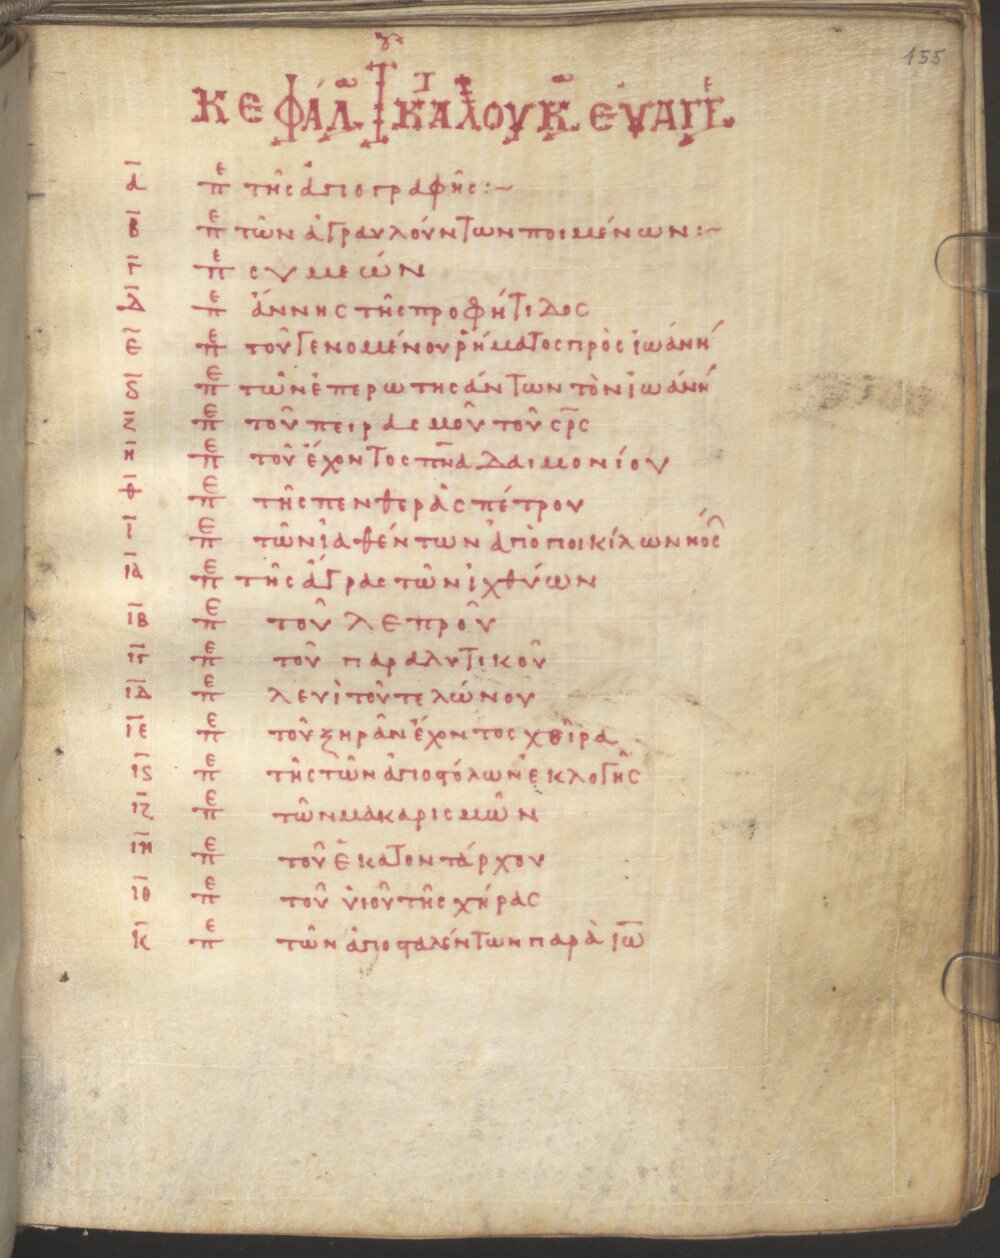 155
κεφάλ τ κα λουκ ευαγγ
α̅ πε της ἀπογραφῆς:~
β̅ πε τῶν ἀγραυλούντων ποιμένων:~
γ̅ πε συμεών
δ̅ πε ἄννης τῆς προφήτιδος
ε̅ πε τοῦ γενομένου ῥήματος πρὸς ἰωάνν
ϛ̅ πε τῶν ἐπερωτησάντων τὸν ἰωάνν
ζ̅ πε τοῦ πειρασμοῦ τοῦ σ̅ρ̅ς
η̅ πε τοῦ ἔχοντος π̅ν̅α δαιμονίου
θ̅ πε τῆς πενθερᾶς πέτρου
ι̅ πε τῶν ἰαθέντων ἀπὸ ποικίλων νόσ
ια̅ πε τῆς ἄγρας τῶν ἰχθύων
ιβ̅ πε τοῦ λεπροῦ
ιγ̅ πε τοῦ παραλυτικοῦ
ιδ̅ πε λευὶ τοῦ τελώνου
ιε̅ πε τοῦ ξηρὰν ἔχοντος χεῖρα
ιϛ̅ πε τῆς τῶν ἀποστόλων ἐκλογῆς
ιζ̅ πε τῶν μακαρισμῶν
ιη̅ πε τοῦ ἑκατοντάρχου
ιθ̅ πε τοῦ υἱοῦ τῆς χήρας
κ̅ πε τῶν ἀποσταλέντων παρὰ ἰω̅